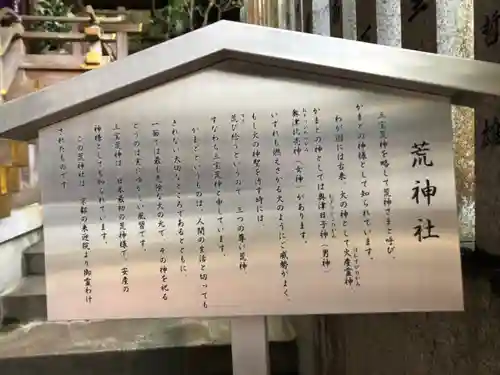 荒神社
三宝荒神を略して荒神さまと呼び、
かまどの神様として知られています。
わが国には古来、火の神として火産霊神、
ほむすびのかみ
かまどの神としては奥津日子神(男神)
おきつひこのかみ
奥津比売神(女神)があります。
おきつひめのかみ
いずれも燃えさかる火のようにご威勢がよく、
もし火の神聖を汚す時には
荒び給うというので、三つの尊い荒神
すなわち三宝荒神と申しています。
かまどというものは、人間の生活と切っても
きれない大切なところであるとともに、
一面では最も清浄な火の元で、その神を祀る
というのは実にゆかしい風習です。
三宝荒神は、日本最初の荒神様で、安産の
神様としても知られています。
この荒神社は、京都の来迎院より御霊わけ
されたものです